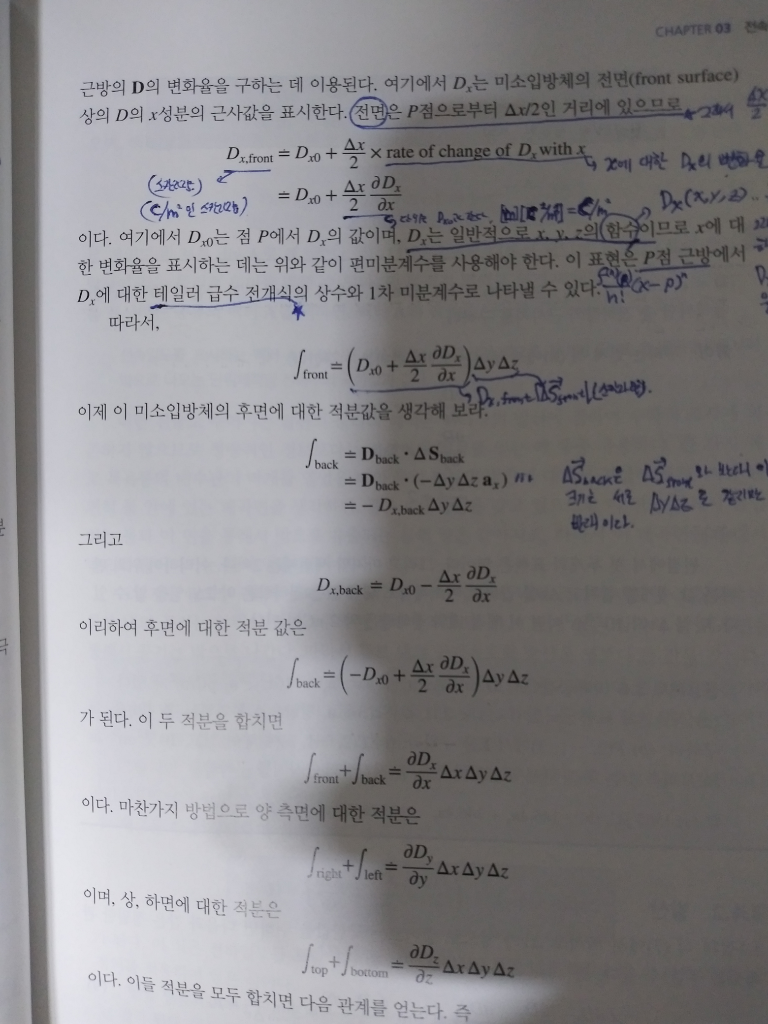 CHAPTER 03 전속
근방의 D의 변화율을 구하는 데 이용된다. 여기에서 Dₓ는 미소입방체의 전면(front surface)
상의 D의 x성분의 근사값을 표시한다. 전면은 P점으로부터 Δx/2인 거리에 있으므로
Δx/2
Dₓ,front ≐ Dₓ₀ + Δx/2 × rate of change of Dₓ with x
x에 대한 Dₓ의
(스칼라값)
≐ Dₓ₀ + Δx/2 ∂Dₓ/∂x
(C/m²인 스칼라값)
= C/m²
Dₓ(x, y, z)...
이다. 여기에서 Dₓ₀는 점 P에서 Dₓ의 값이며, Dₓ는 일반적으로 x, y, z의 함수이므로 x에 대
한 변화율을 표시하는 데는 위와 같이 편미분계수를 사용해야 한다. 이 표현은 P점 근방에서
Dₓ에 대한 테일러 급수 전개식의 상수와 1차 미분계수로 나타낼 수 있다.
n! (x-p)ⁿ
따라서,
∫front ≐ (Dₓ₀ + Δx/2 ∂Dₓ/∂x) Δy Δz
Dₓ,front |ΔS⃗front| (스칼라값).
이제 이 미소입방체의 후면에 대한 적분값을 생각해 보라.
∫back ≐ Dback · ΔSback
≐ Dback · (−Δy Δz aₓ)
≐ − Dₓ,back Δy Δz
ΔS⃗back은 ΔS⃗front와 반대
크기는 서로 ΔyΔz로
반대이다.
그리고
Dₓ,back ≐ Dₓ₀ − Δx/2 ∂Dₓ/∂x
이리하여 후면에 대한 적분 값은
∫back ≐ (−Dₓ₀ + Δx/2 ∂Dₓ/∂x) Δy Δz
가 된다. 이 두 적분을 합치면
∫front + ∫back ≐ ∂Dₓ/∂x Δx Δy Δz
이다. 마찬가지 방법으로 양 측면에 대한 적분은
∫right + ∫left ≐ ∂Dy/∂y Δx Δy Δz
이며, 상, 하면에 대한 적분은
∫top + ∫bottom ≐ ∂Dz/∂z Δx Δy Δz
이다. 이들 적분을 모두 합치면 다음 관계를 얻는다. 즉